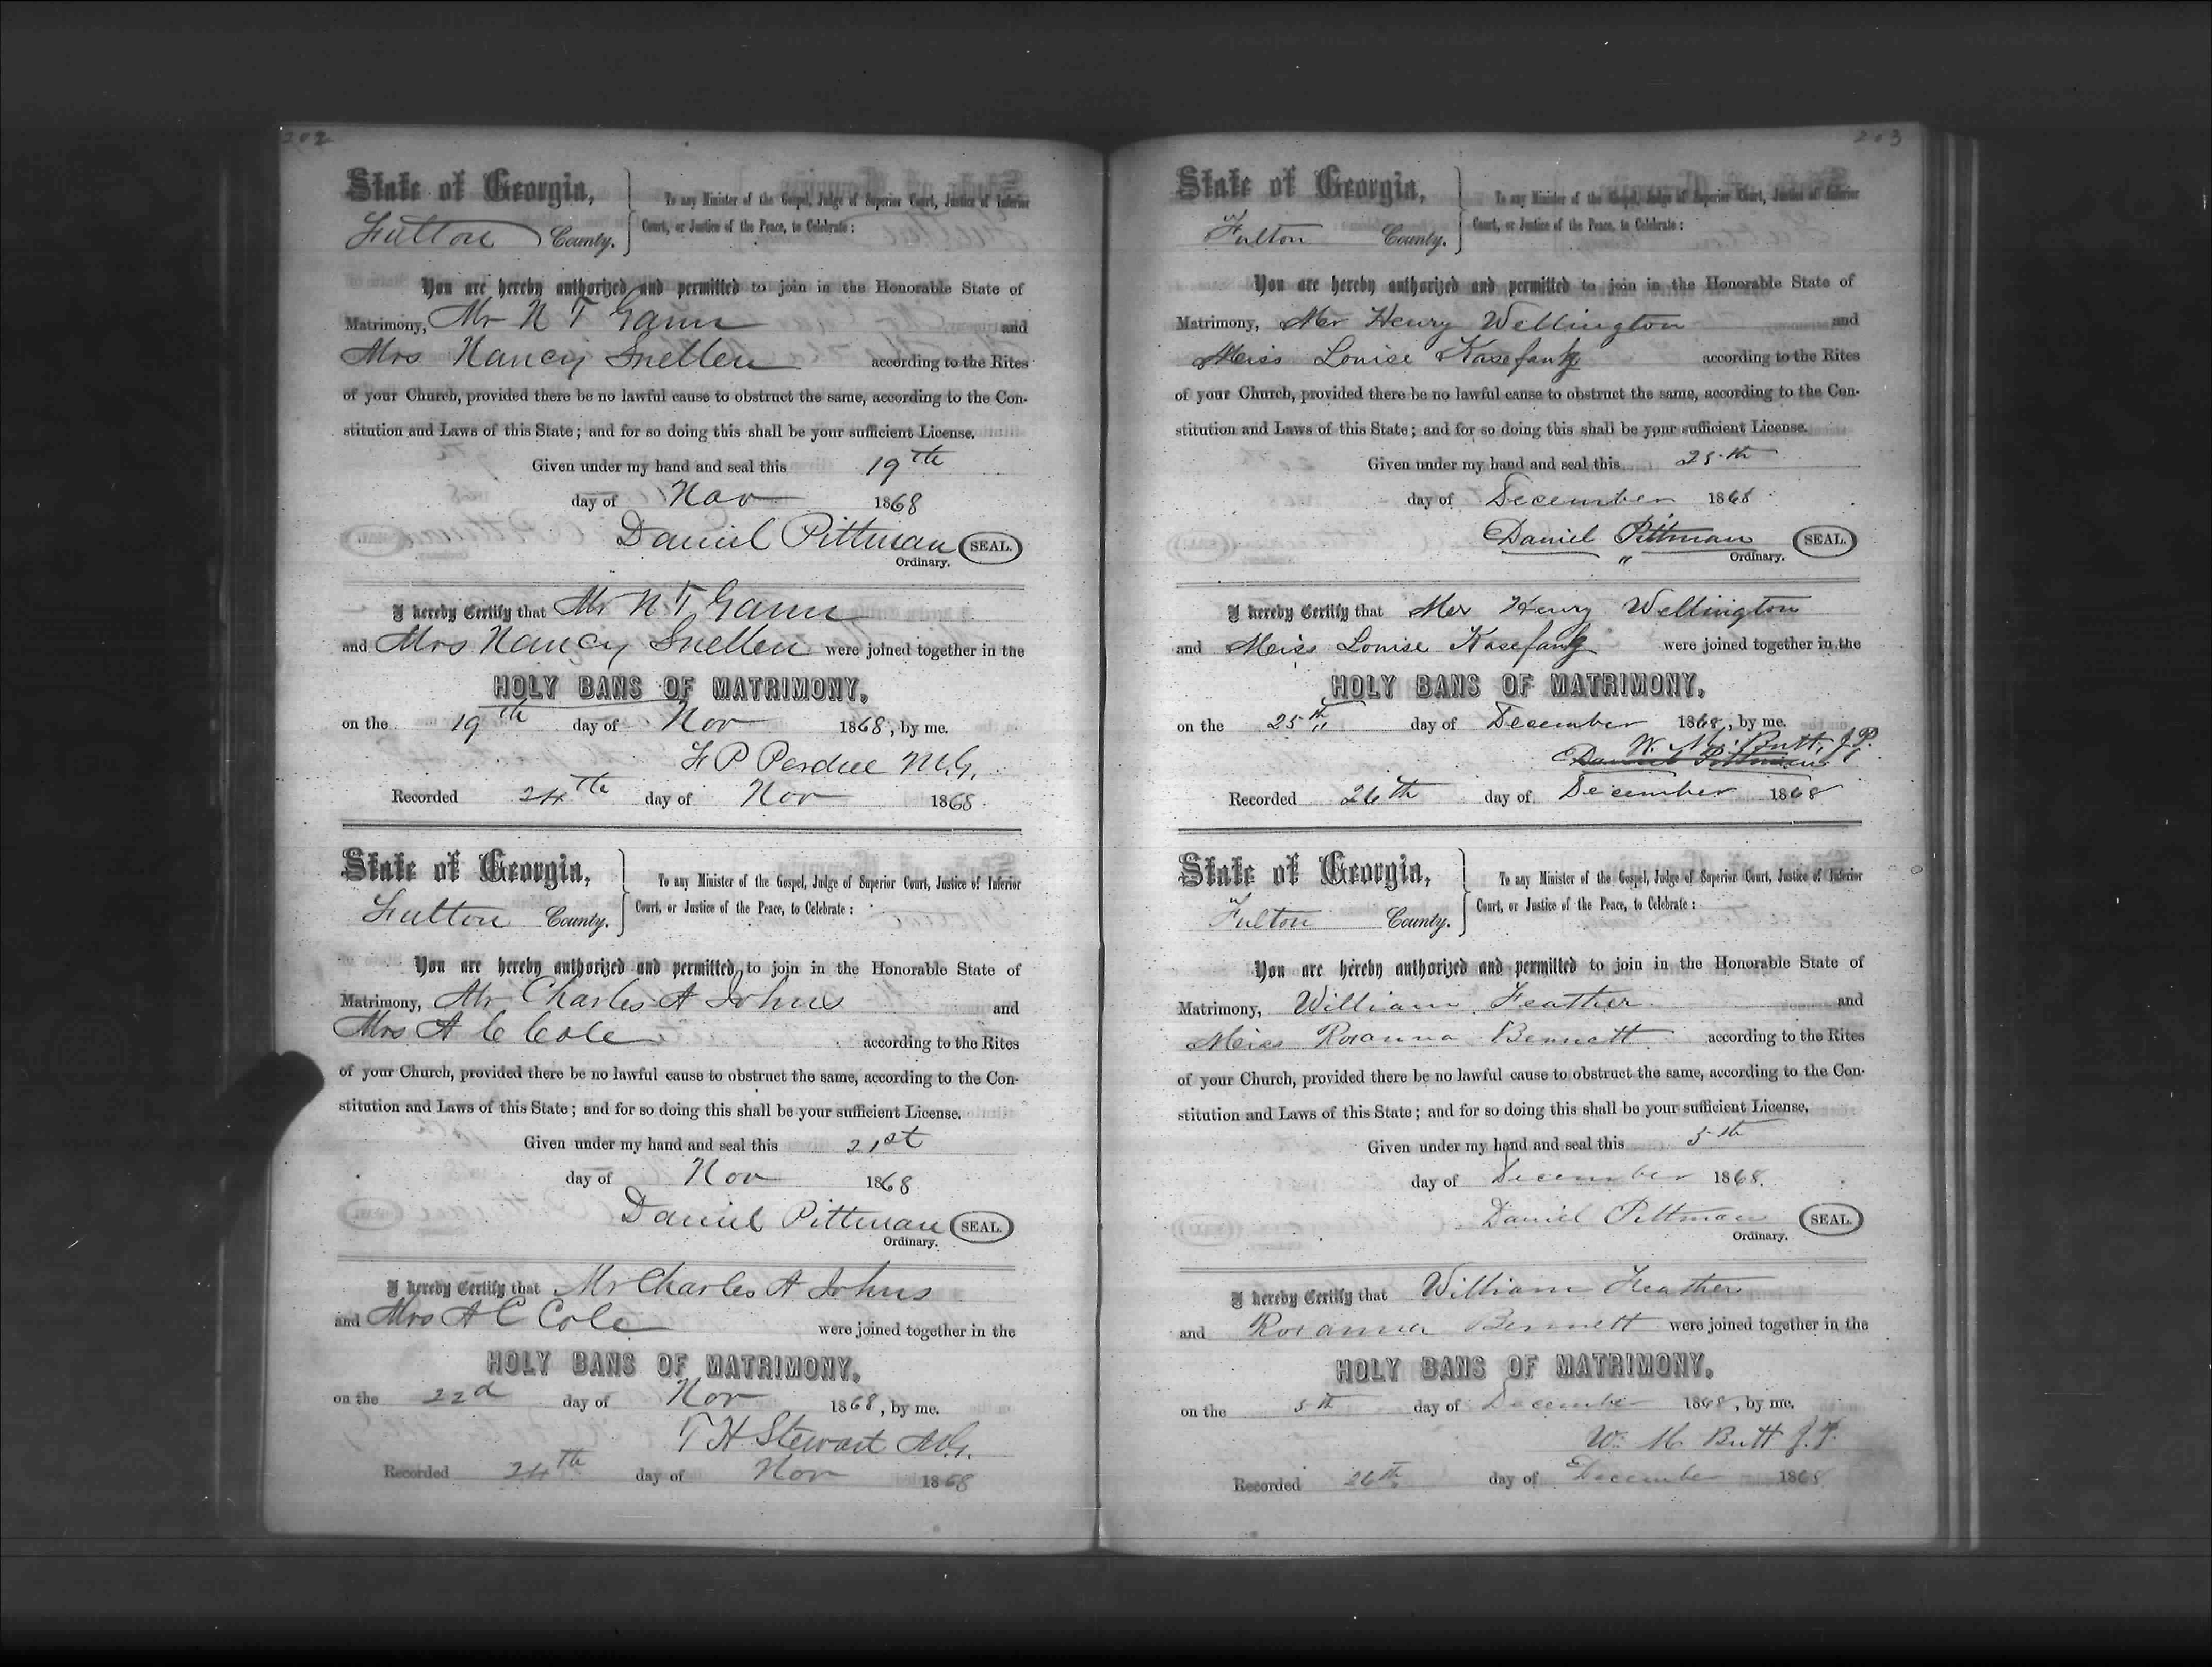 202
State of Georgia,
Fulton County.
To any Minister of the Gospel, Judge of Superior Court, Justice of Inferior
Court, or Justice of the Peace, to Celebrate:
You are hereby authorized and permitted to join in the Honorable State of
Matrimony, Mr N T Gann and
Mrs Nancy Snellen according to the Rites
of your Church, provided there be no lawful cause to obstruct the same, according to the Con-
stitution and Laws of this State; and for so doing this shall be your sufficient License.
Given under my hand and seal this 19th
day of Nov 1868
Daniel Pittman SEAL.
Ordinary.
I hereby Certify that Mr N T Gann
and Mrs Nancy Snellen were joined together in the
HOLY BANS OF MATRIMONY,
on the 19th day of Nov 1868, by me.
F P Perdue M.G.
Recorded 24th day of Nov 1868
State of Georgia,
Fulton County.
To any Minister of the Gospel, Judge of Superior Court, Justice of Inferior
Court, or Justice of the Peace, to Celebrate:
You are hereby authorized and permitted to join in the Honorable State of
Matrimony, Mr Charles A Johns and
Mrs A C Cole according to the Rites
of your Church, provided there be no lawful cause to obstruct the same, according to the Con-
stitution and Laws of this State; and for so doing this shall be your sufficient License.
Given under my hand and seal this 21st
day of Nov 1868
Daniel Pittman SEAL.
Ordinary.
I hereby Certify that Mr Charles A Johns
and Mrs A C Cole were joined together in the
HOLY BANS OF MATRIMONY,
on the 22d day of Nov 1868, by me.
T H Stewart M.G.
Recorded 24th day of Nov 1868
203
State of Georgia,
Fulton County.
To any Minister of the Gospel, Judge of Superior Court, Justice of Inferior
Court, or Justice of the Peace, to Celebrate:
You are hereby authorized and permitted to join in the Honorable State of
Matrimony, Mr Henry Wellington and
Miss Louise according to the Rites
of your Church, provided there be no lawful cause to obstruct the same, according to the Con-
stitution and Laws of this State; and for so doing this shall be your sufficient License.
Given under my hand and seal this 25th
day of December 1868
Daniel Pittman SEAL.
Ordinary.
I hereby Certify that Mr Henry Wellington
and Miss Louise were joined together in the
HOLY BANS OF MATRIMONY,
on the 25th day of December 1868, by me.
W. M. Butt, J.P.
Daniel Pittman
Recorded 26th day of December 1868
State of Georgia,
Fulton County.
To any Minister of the Gospel, Judge of Superior Court, Justice of Inferior
Court, or Justice of the Peace, to Celebrate:
You are hereby authorized and permitted to join in the Honorable State of
Matrimony, William Feather and
Miss Roxanna Bennett according to the Rites
of your Church, provided there be no lawful cause to obstruct the same, according to the Con-
stitution and Laws of this State; and for so doing this shall be your sufficient License,
Given under my hand and seal this 5th
day of December 1868.
Daniel Pittman SEAL.
Ordinary.
I hereby Certify that William Feather
and Roxanna Bennett were joined together in the
HOLY BANS OF MATRIMONY,
on the 5th day of December 1868, by me.
W. M. Butt J.P.
Recorded 26th day of December 1868